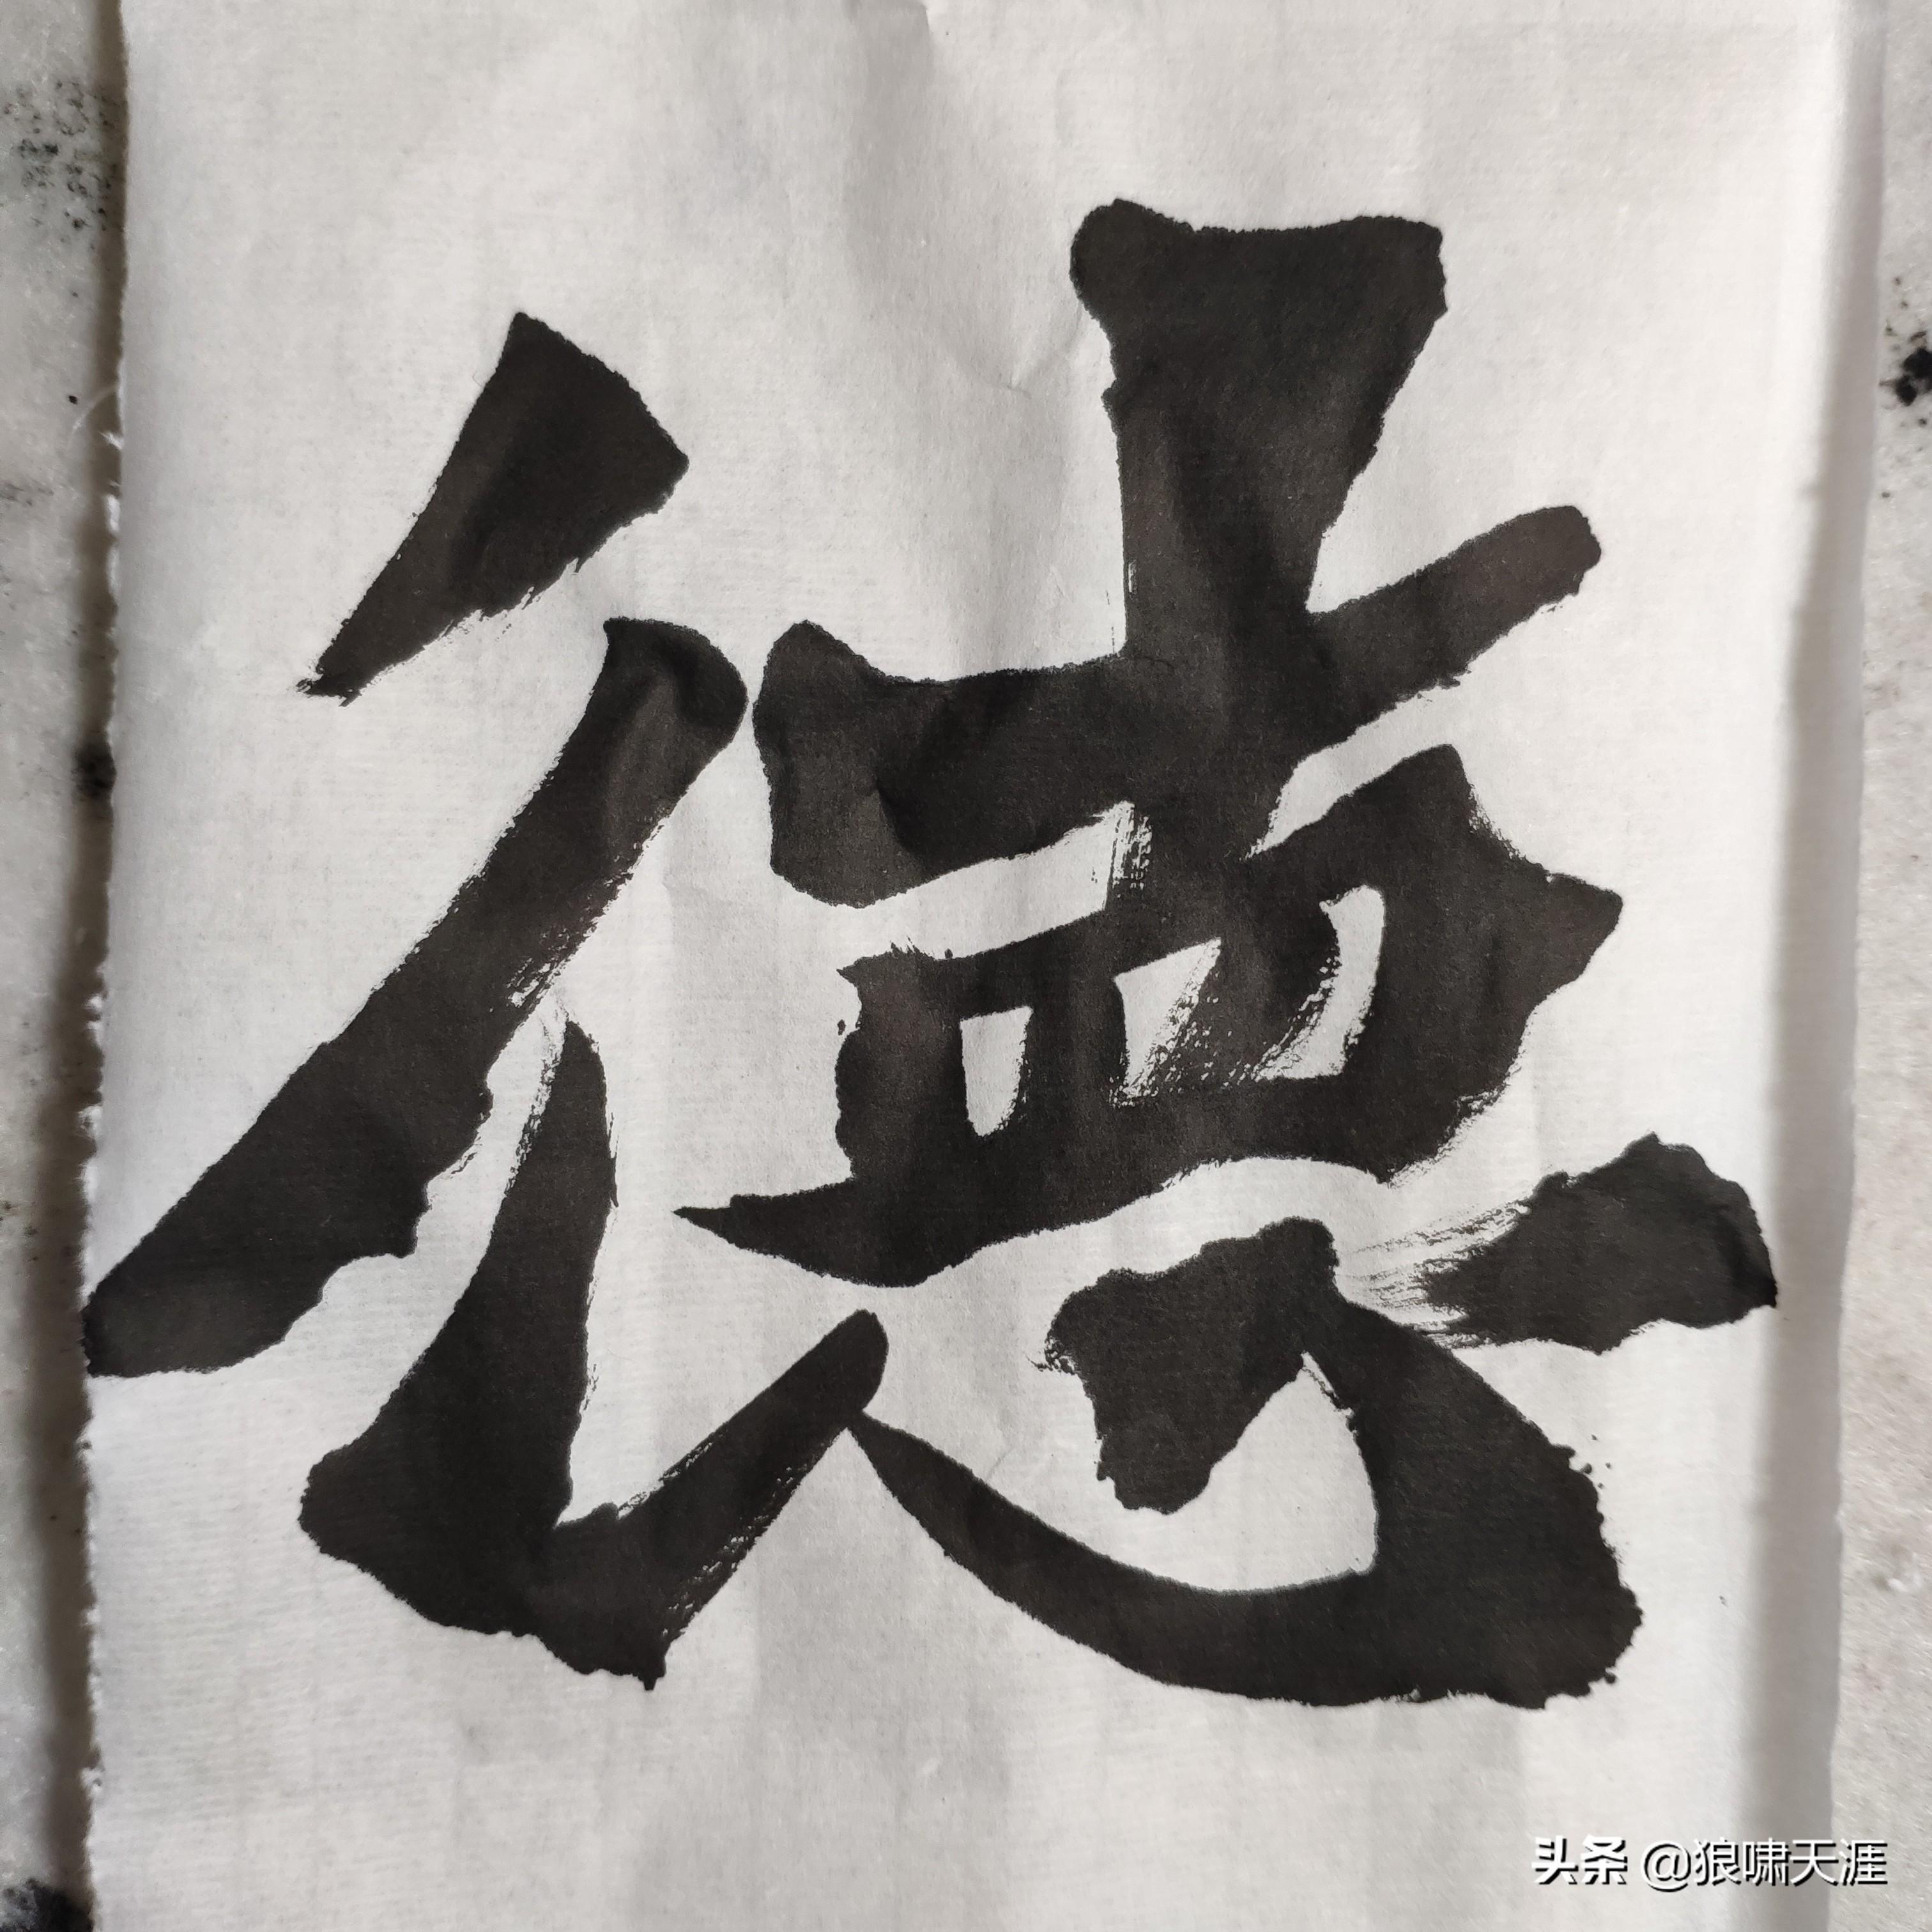 德
头条 @狼啸天涯